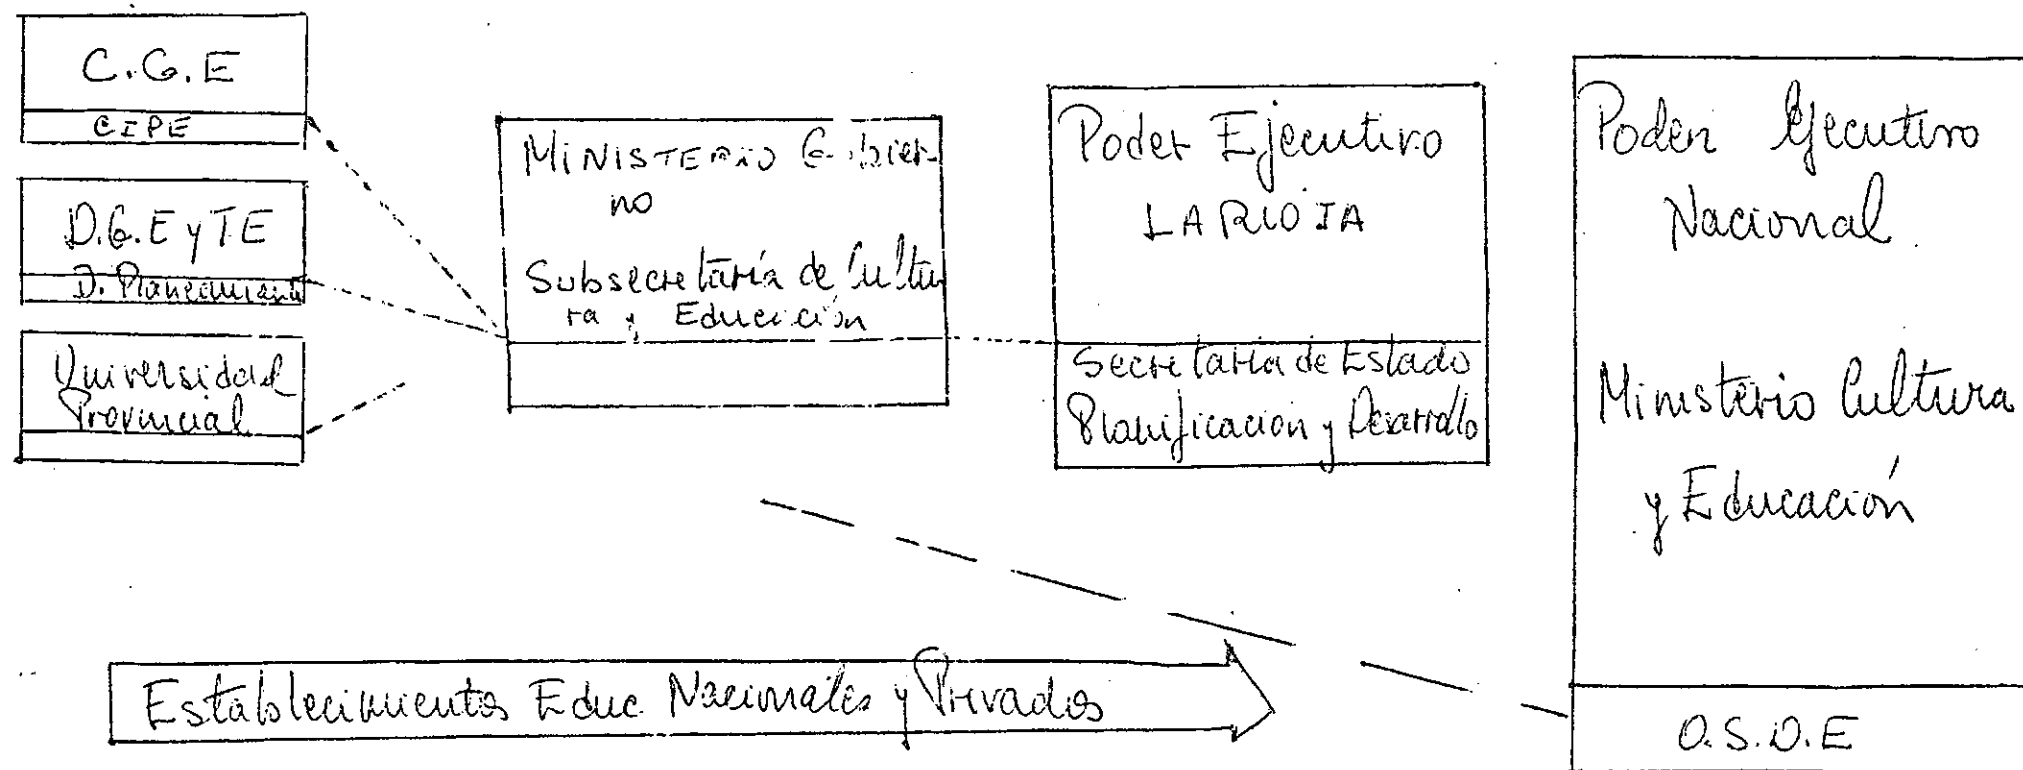 C.G.E
CIPE
D.G.E y TE
D. Planeamiento
Universidad
Provincial
MINISTERIO Gobier-
no
Subsecretaría de Cultu
ra y Educación
Poder Ejecutivo
LA RIOJA
Secretaría de Estado
Planificación y Desarrollo
Poder Ejecutivo
Nacional
Ministerio Cultura
y Educación
O.S.D.E
Establecimientos Educ. Nacionales y Privados